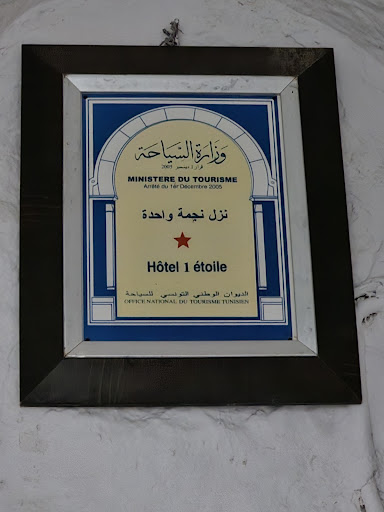 وزارة السياحة
قرار 1 ديسمبر 2005
MINISTERE DU TOURISME
Arrêté du 1er Décembre 2005
نزل نجمة واحدة
Hôtel 1 étoile
الديوان الوطني التونسي للسياحة
OFFICE NATIONAL DU TOURISME TUNISIEN